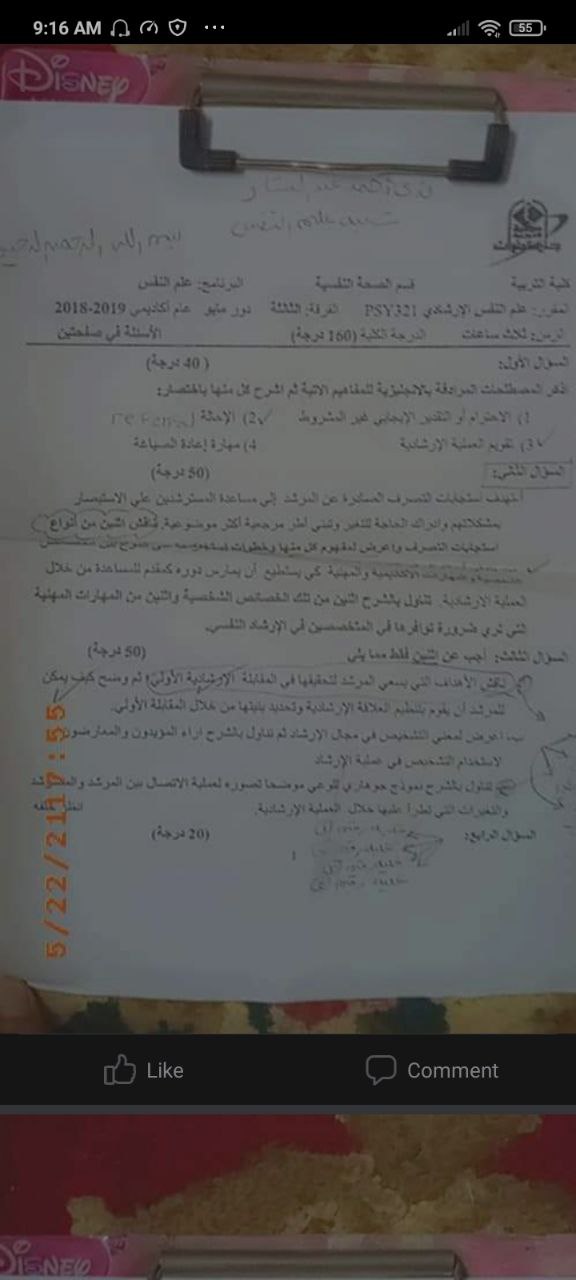 9:16 AM
55
DISNEY
كلية التربية قسم الصحة النفسية البرنامج: علم النفس
المقرر: علم النفس الإرشادي PSY321 الفرقة: الثالثة دور مايو عام أكاديمي 2018-2019
الزمن: ثلاث ساعات الدرجة الكلية (160 درجة) الأسئلة في صفحتين
السؤال الأول: (40 درجة)
اذكر المصطلحات المرادفة بالانجليزية للمفاهيم الاتية ثم اشرح كل منها باختصار:
1) الاحترام أو التقدير الإيجابي غير المشروط 2) الإحالة
3) تقويم العملية الإرشادية 4) مهارة إعادة الصياغة
السؤال الثاني: (50 درجة)
استجابات التصرف الصادرة عن المرشد إلى مساعدة المسترشدين علي الاستبصار
بمشكلاتهم وإدراك الحاجة للتغير وتبني أطر مرجعية أكثر موضوعية. ناقش اثنين من أنواع
استجابات التصرف واعرض لمفهوم كل منها وخطوات
الأكاديمية والمهنية كي يستطيع أن يمارس دوره كمقدم للمساعدة من خلال
العملية الإرشادية. تناول بالشرح اثنين من تلك الخصائص الشخصية واثنين من المهارات المهنية
التي تري ضرورة توافرها في المتخصصين في الإرشاد النفسي.
السؤال الثالث: أجب عن اثنين فقط مما يلي (50 درجة)
ناقش الأهداف التي يسعي المرشد لتحقيقها في المقابلة الإرشادية الأولي؛ ثم وضح كيف يمكن
للمرشد أن يقوم بتنظيم العلاقة الإرشادية وتحديد بنيتها من خلال المقابلة الأولي.
ب- اعرض لمعني التشخيص في مجال الإرشاد ثم تناول بالشرح اراء المؤيدون والمعارضون
لاستخدام التشخيص في عملية الإرشاد
تناول بالشرح نموذج جوهاري للوعي موضحا تصوره لعملية الاتصال بين المرشد والمسترشد
والتغيرات التي تطرأ عليها خلال العملية الإرشادية. انظر خلفه
السؤال الرابع: (20 درجة)
1
5/22/21 17:55
Like
Comment
DISNEY